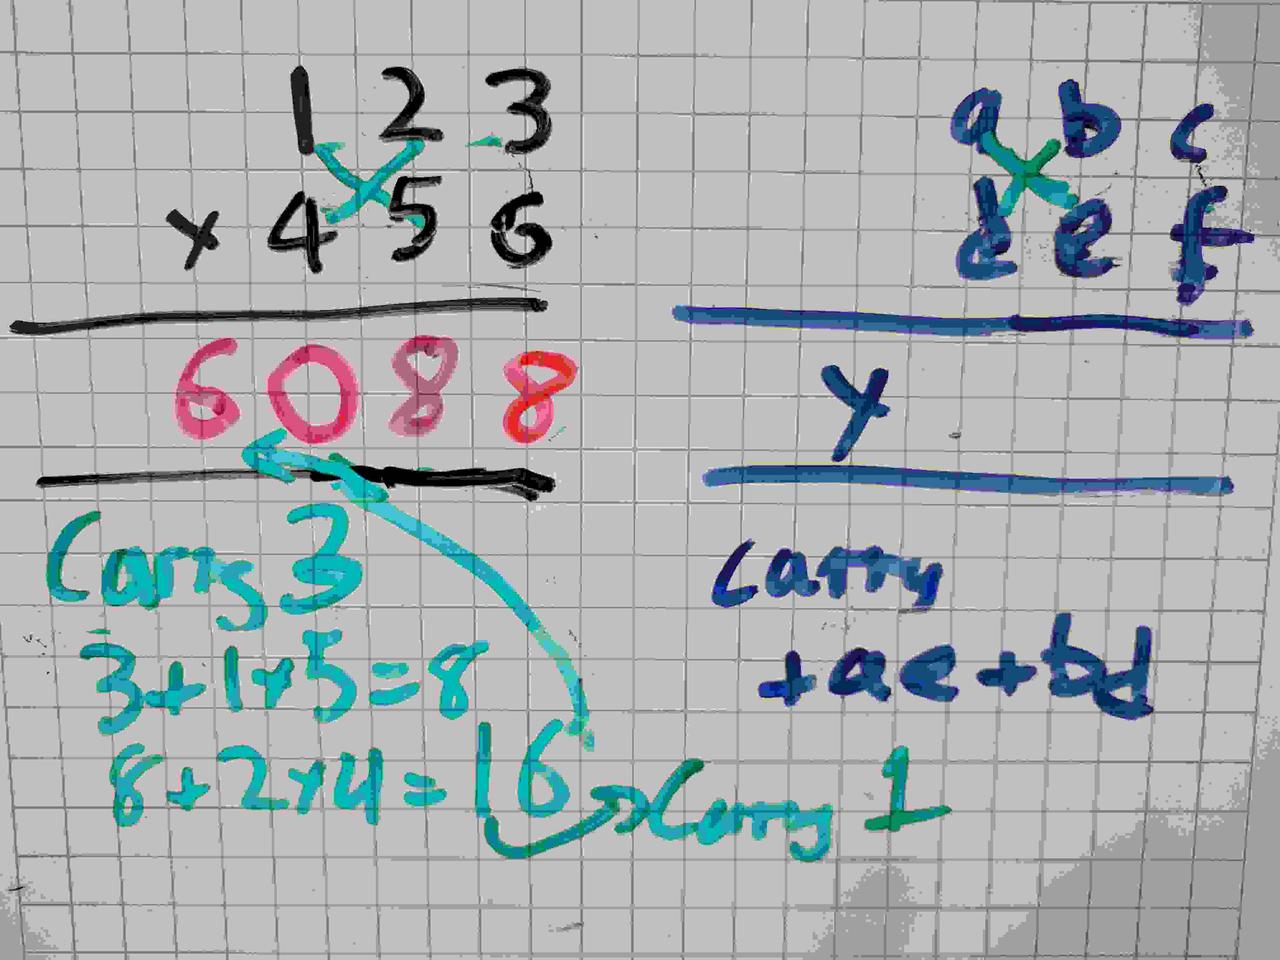 1 2 3
x 4 5 6
6 0 8 8
Carry 3
3+1x5=8
8+2x4=16 → Carry 1
a b c
d e f
y
Carry
+ae+bd